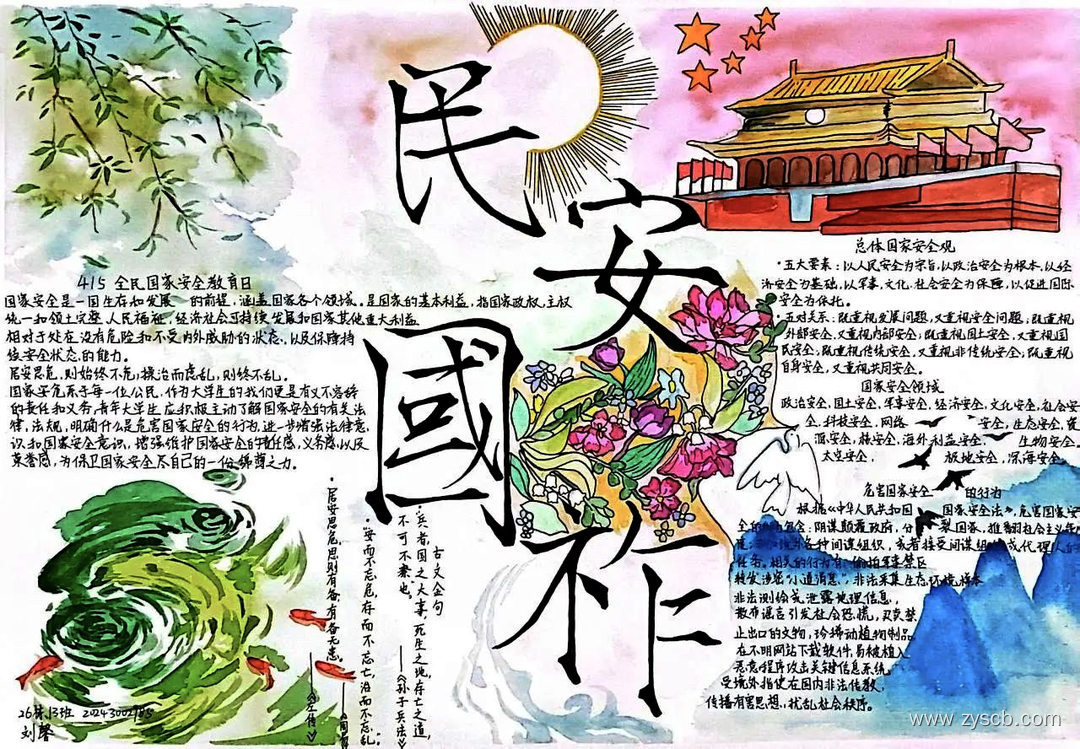 民
安
國
祚
415 全民国家安全教育日
国家安全是一国生存和发展 的前提,涵盖国家各个领域。是国家的基本利益,指国家政权,主权
统一和领土完整,人民福祉,经济社会可持续发展和国家其他重大利益
相对于处在没有危险和不受内外威胁的状态,以及保障持
续安全状态的能力。
居安思危,则始终不危;操治而虑乱,则终不乱。
国家安危系于每一位公民,作为大学生的我们更是有义不容辞
的责任和义务,青年大学生应积极主动了解国家安全的有关法
律,法规,明确什么是危害国家安全的行为,进一步增强法律意
识和国家安全意识,增强维护国家安全的责任感,义务感,以及
荣誉感,为保卫国家安全尽自己的一份绵薄之力。
总体国家安全观
·五大要素:以人民安全为宗旨,以政治安全为根本,以经
济安全为基础,以军事,文化,社会安全为保障,以促进国际
安全为依托。
五对关系:既重视发展问题,又重视安全问题;既重视
外部安全,又重视内部安全;既重视国土安全,又重视国
民安全;既重视传统安全,又重视非传统安全,既重视
自身安全,又重视共同安全。
国家安全领域
政治安全,国土安全,军事安全,经济安全,文化安全,社会安
全,科技安全,网络 安全,生态安全,资
源安全,核安全,海外利益安全, 生物安全,
太空安全, 极地安全,深海安全
危害国家安全 的行为
根据《中华人民共和国 国家安全法》,危害国家安
全的 包含:阴谋颠覆政府,分 裂国家,推翻社会主义
各种间谍组织,或者接受间谍组织 或代理人的
任务。相关的行为有:偷拍军事禁区
被传涉密"小道消息",非法采集生态环境样本
非法测绘或泄露地理信息,
散布谣言引发社会恐慌,买卖禁
止出口的文物,珍稀动植物制品
在不明网站下载软件,易被植入
恶意程序攻击关键信息系统
受境外指使在国内非法传教,
传播有害思想,扰乱社会秩序。
古文金句
·"兵者,国之大事,死生之地,存亡之道,
不可不察也。
——《孙子兵法》
·"安而不忘危,存而不忘亡,治而不忘乱。
·居安思危,思则有备,有备无患。
——《左传》
13班 2024300
刘馨
www.zyscb.com